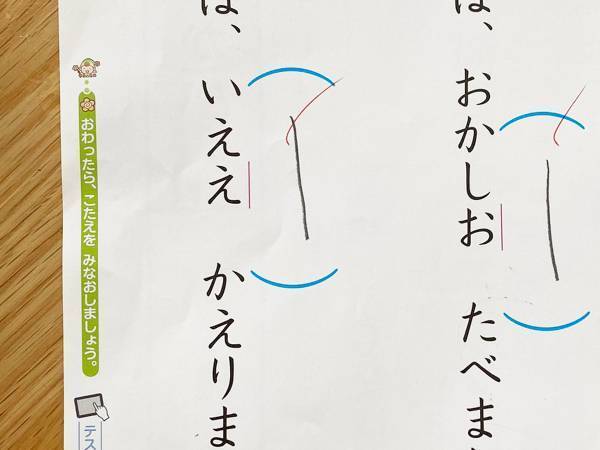 は、おかしお たべま
は、いええ かえりま
おわったら、こたえを みなおしましょう。
テス